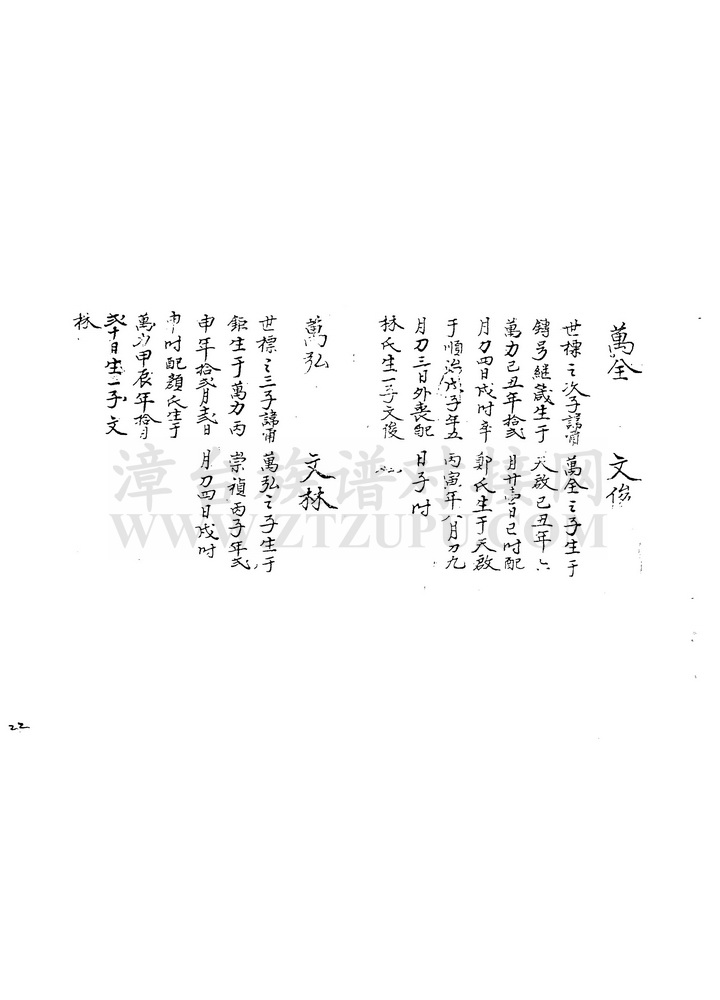 萬全
世標之次子諱甯
鑄号繼葴生于
萬力己丑年拾弍
月刀四日戌时卒
于順治戊子年五
月刀三日外喪配
林氏生一子文俊
文俊
萬全之子生于
天啟己丑年六
月廿壹日巳时配
鄭氏生于天啟
丙寅年八月刀九
日子时
萬弘
世標之三子諱甯
鉅生于萬力丙
申年拾弍月弍日
申时配顏氏生于
萬力甲辰年拾月
弍十日生一子文
林
文林
萬弘之子生于
崇禎丙子年弍
月刀四日戌时
22
漳台族谱对接网
WWW.ZTZUPU.COM